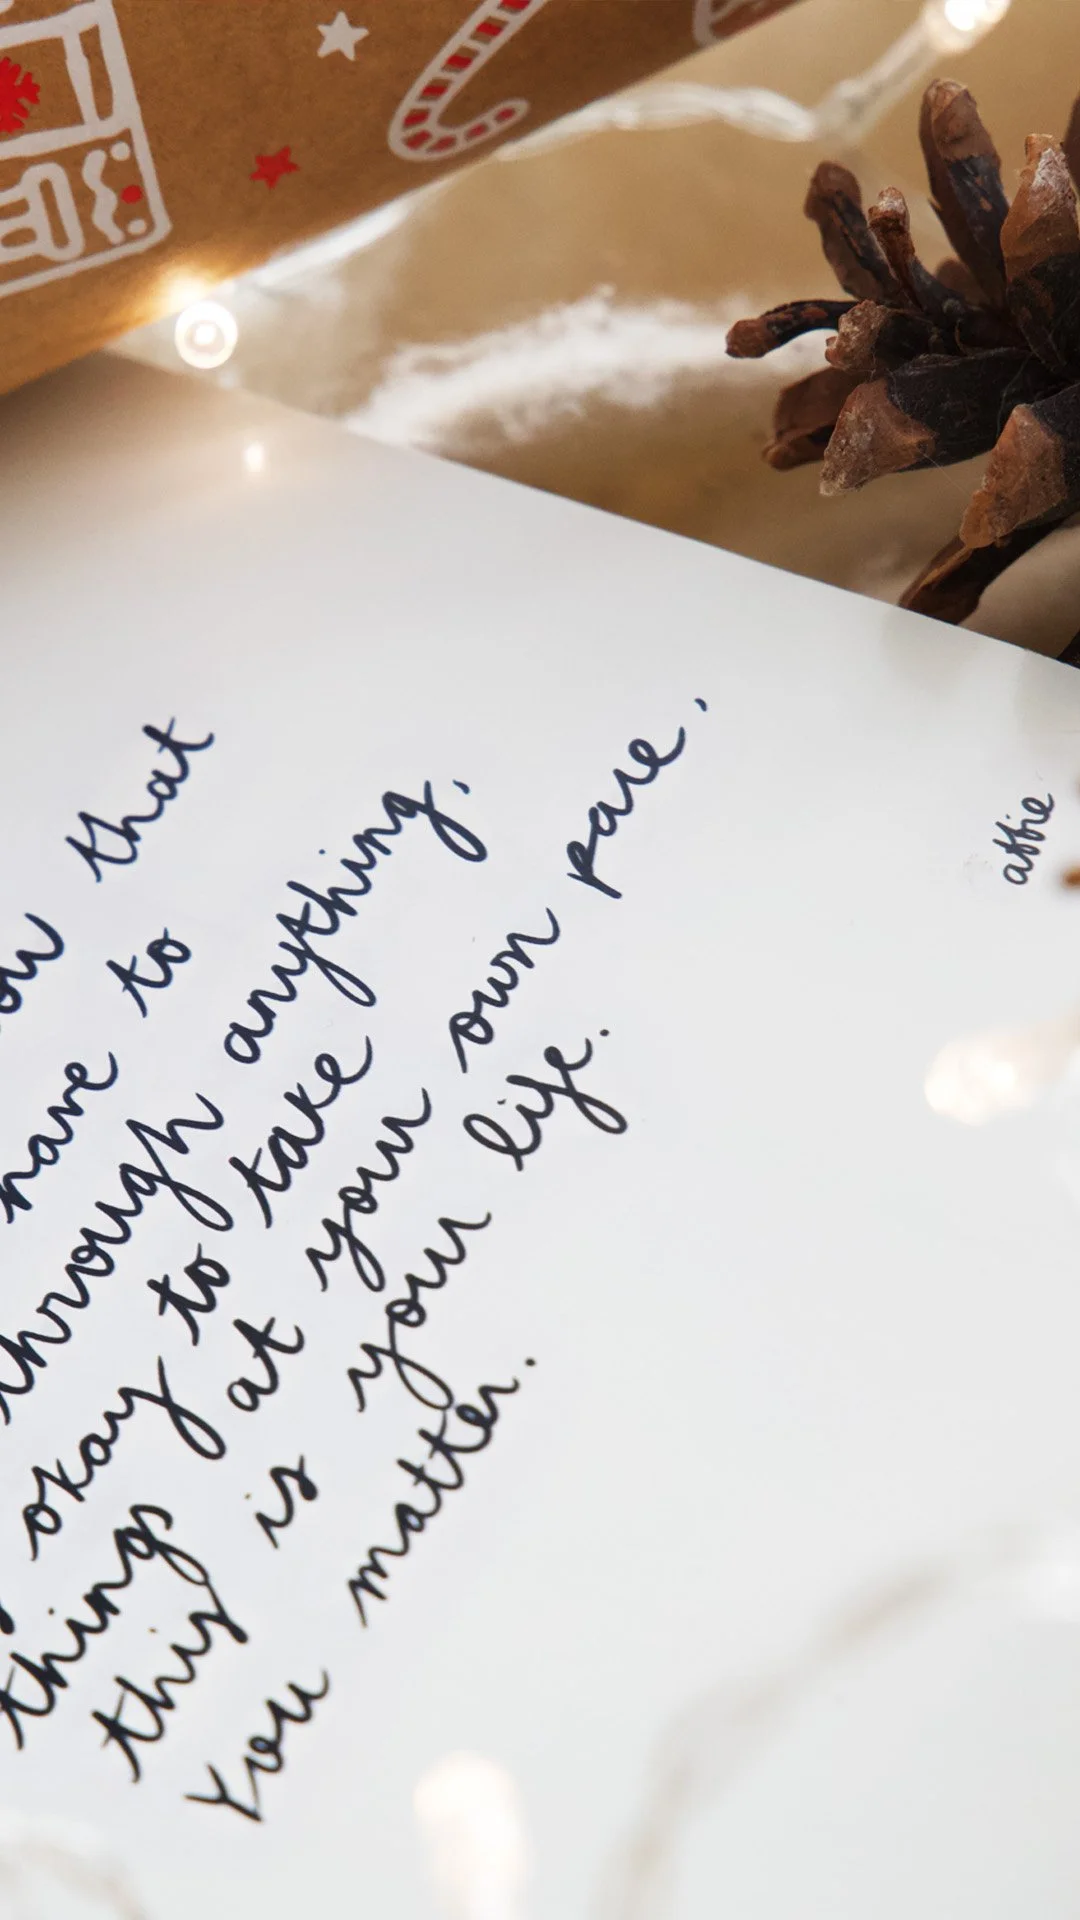 that
have to
through anything,
okay to take
things at your own pace,
this is your life.
You matter.